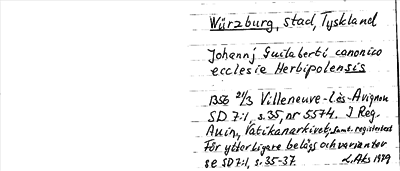 Würzburg, stad, Tyskland
Johannj Guilaberti canonico
ecclesie Herbipolensis
1356 21/3 Villeneuve-lès-Avignon
SD 7:1, s. 35, nr 5574. I Reg.
Avin, Vatikanarkivet, samt. registerbd
För ytterligare belägg och varianter
se SD 7:1, s. 35-37.